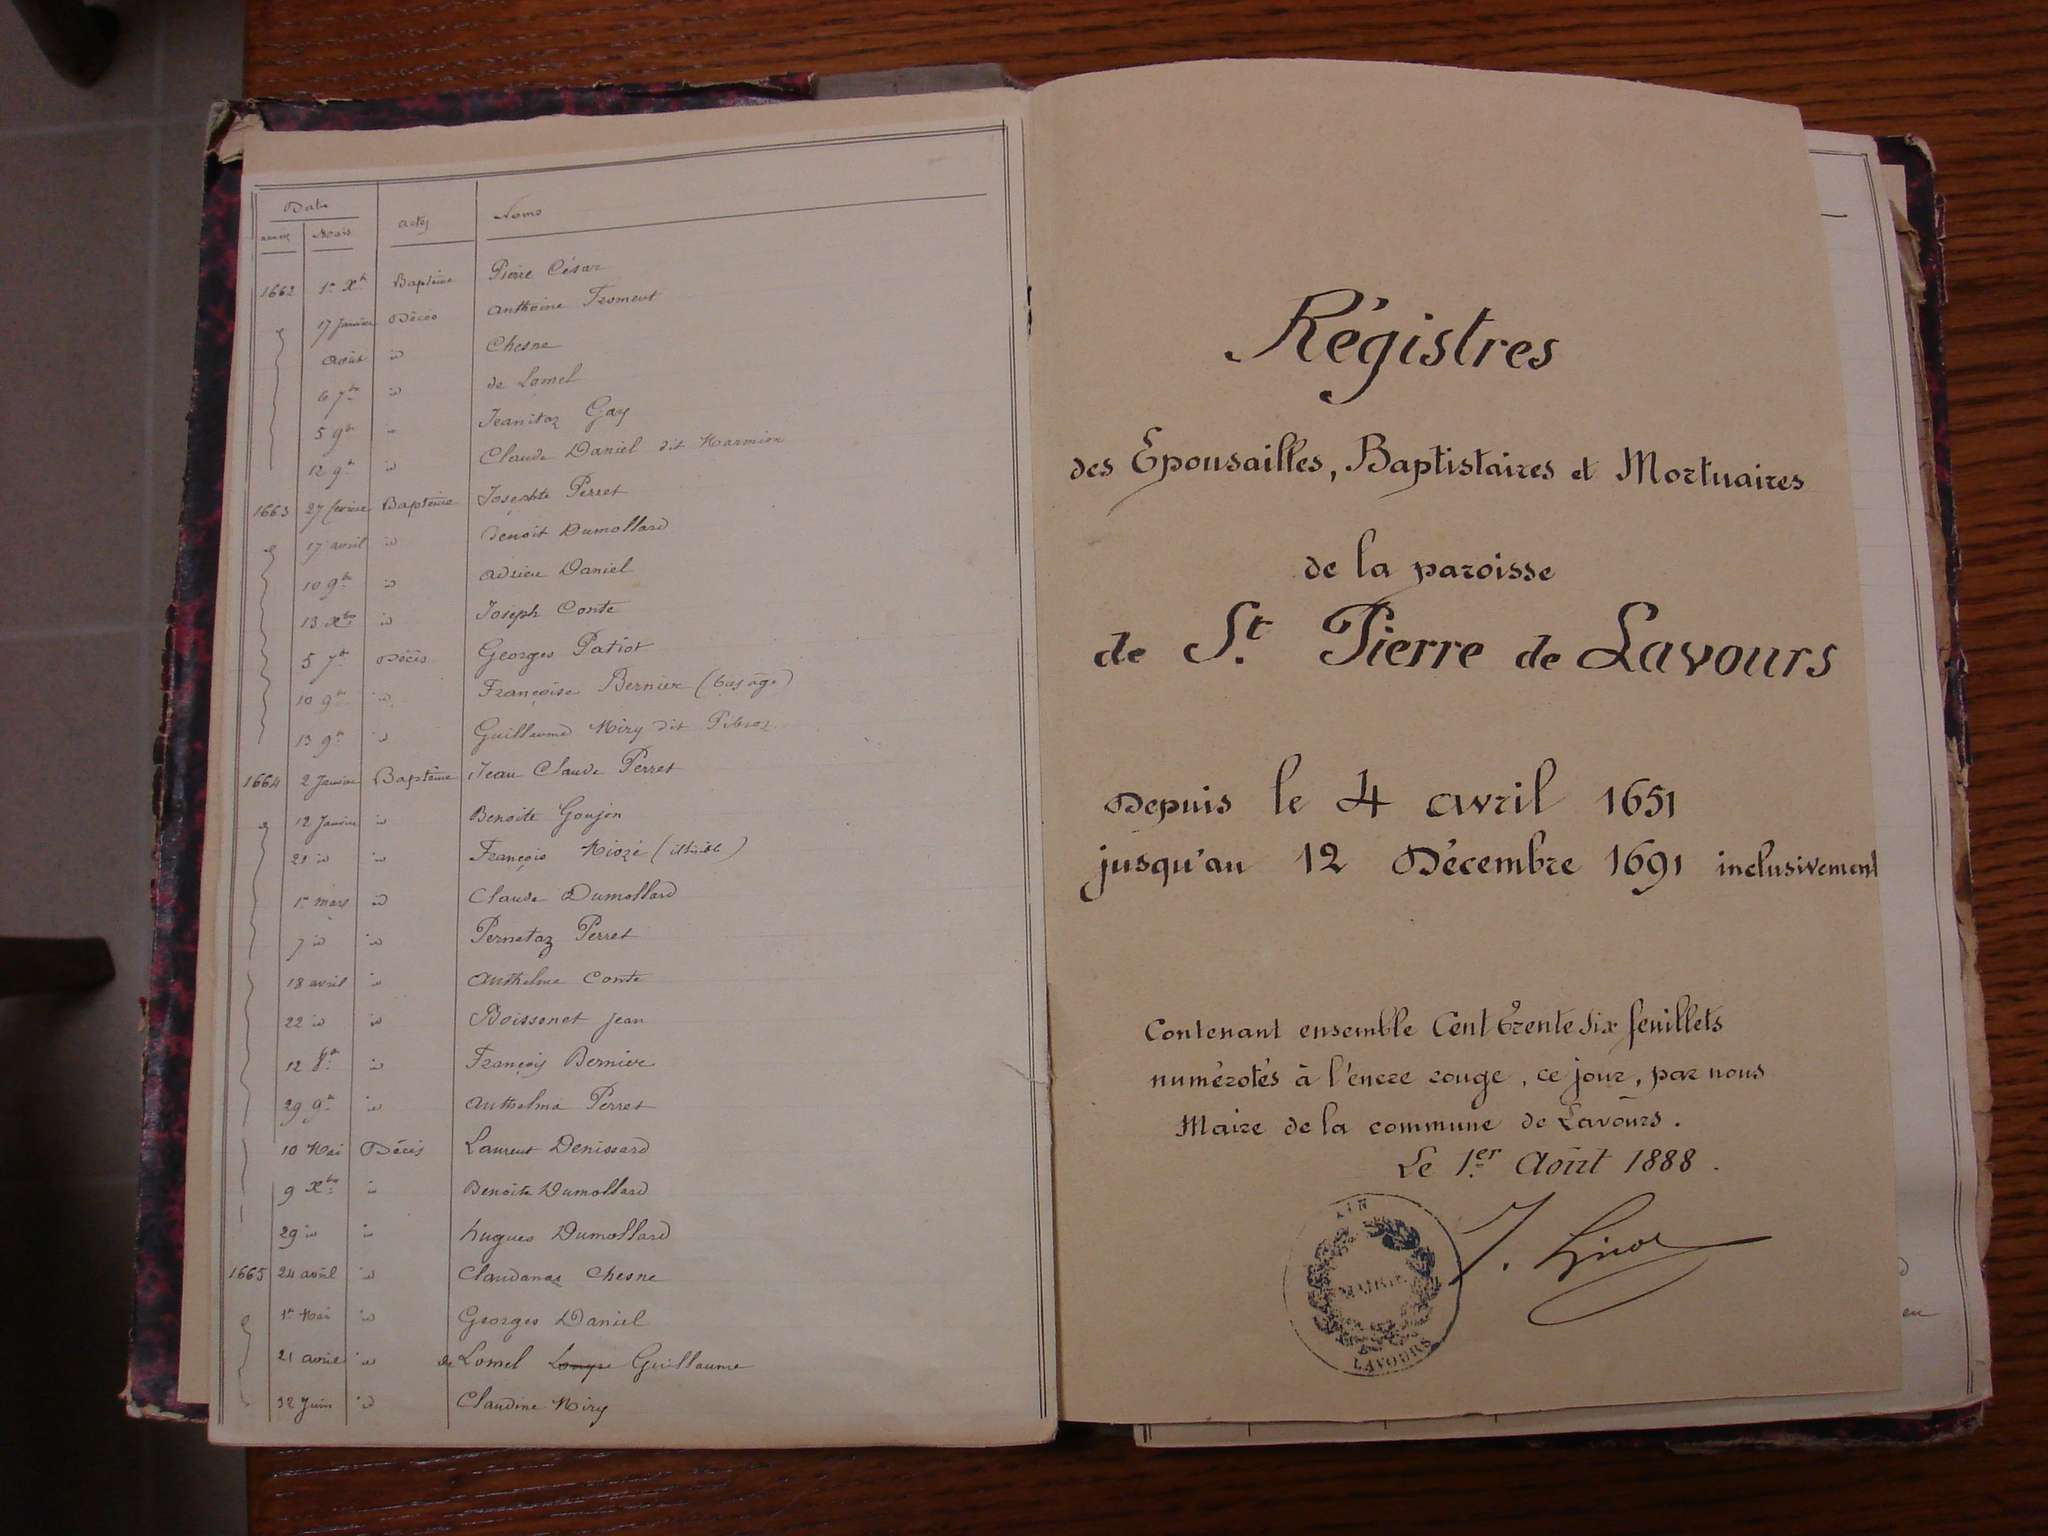 Date
année Mois actes Noms
1662 1er Xbre Baptême Pierre César
17 Janvier Décès Anthoine Froment
Août id Chesne
6 7bre id de Lomel
5 9bre id Jeanitaz Gay
12 9bre id Claude Daniel dit Marmion
1663 27 février Baptême Josephte Perret
17 avril id Benoit Dumollard
10 9bre id Adrien Daniel
13 Xbre id Joseph Conte
5 7bre Décès Georges Patiot
10 9bre id Françoise Bernier (bas âge)
13 9bre id Guillaume Miry dit
1664 2 Janvier Baptême Jean Claude Perret
12 Janvier id Benoite Goujon
21 id id François (illisible)
1er mars id Claude Dumollard
7 id id Pernetaz Perret
18 avril id Anthelme Conte
22 id id Boissonet Jean
12 8bre id François Bernier
29 9bre id Anthelma Perret
10 Mai Décès Laurent Denissard
9 Xbre id Benoite Dumollard
29 id id hugues Dumollard
1665 24 avril id Claudanaz Chesne
1er Mai id Georges Daniel
21 avril id de Lomel Guillaume
12 Juin id Claudine Miry
Régistres
des Epousailles, Baptistaires et Mortuaires
de la paroisse
de St. Pierre de Lavours
Depuis le 4 avril 1651
jusqu'au 12 Décembre 1691 inclusivement
Contenant ensemble Cent trente six feuillets
numérotés à l'encre rouge, ce jour, par nous
Maire de la commune de Lavours.
Le 1.er Août 1888.
AIN
MAIRIE
LAVOURS